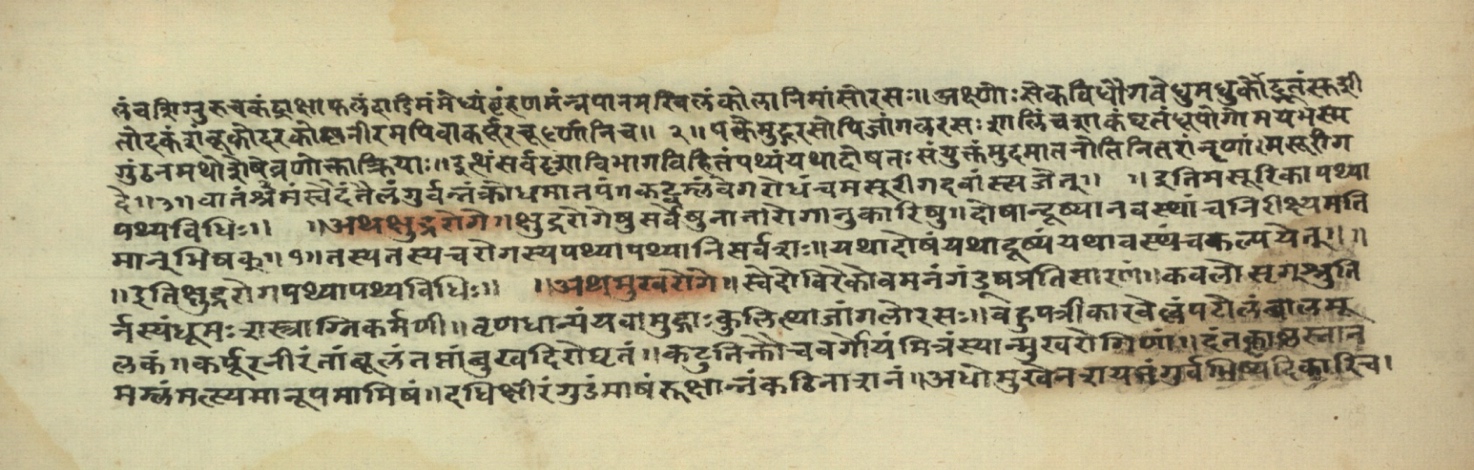 लंचशिग्नुरुचकंद्राक्षाफलंदाडिमंमेध्यंबृंहणमंन्नपानमखिलंकोलानिमांसोरसः॥अक्ष्णोःसेकविधौगवेधुमधुकोद्भूतंसुशी
तोदकंशंबूकोदरकोशनीरमपिवाकर्पूरचूर्णानिच॥ २॥ पक्केमुद्गरसोपिजांगलरसःशालिंचशाकंघृतंधूपोगोमयभस्म
गुंठनमथोशेषेव्रणोक्ताक्रियाः॥इत्थंसर्वदृशाविभागविहितंपथ्यंयथादोषतःसंयुक्तंमुदमातनोतिनितरांनृणां।मसूरीग
दे॥३॥वातंश्रमंस्वेदंतैलंगुर्वन्तंक्रोधमातपं।कट्वम्लंवेगरोधंचमसूरीगदवांस्त्यजेत्॥ ॥इतिमसूरिकापथ्या
पथ्यविधिः॥ ॥अथक्षुद्ररोगे॥क्षुद्ररोगेषुसर्वेषुनानारोगानुकारिषु॥दोषान्दूष्यानवस्थांचनिरीक्ष्यमति
मान्भिषक्॥१॥तस्यतस्यचरोगस्यपथ्यापथ्यानिसर्वशः॥यथादोषंयथादूष्यंयथावस्थंचकल्पयेत्॥॥
॥इतिक्षुद्ररोगपथ्यापथ्यविधिः॥ ॥अथमुखरोगे॥स्वेदोविरेकोवमनंगंडूषप्रतिसारणं॥कवलोसृग्स्रुति
र्नस्यंधूमःशस्त्राग्निकर्मणी॥तृणधान्यंयवामुद्गाःकुलित्थाजांगलोरसः॥बहुपत्रीकारवेल्लंपटोलंबालमू
लकं॥कर्पूरनीरंतांबूलंतप्तांबुखदिरोघृतं॥कटुतिक्तौचवर्गोयंमित्रंस्यान्मुखरोगिणां॥दंतकाष्ठस्नान
मम्लंमत्स्यमानूपमामिषं॥दधिक्षीरंगुडंमाषंरूक्षान्नंकठिनाशनं॥अधोमुखेनशयनंगुर्वभिष्यंदिकारिच।